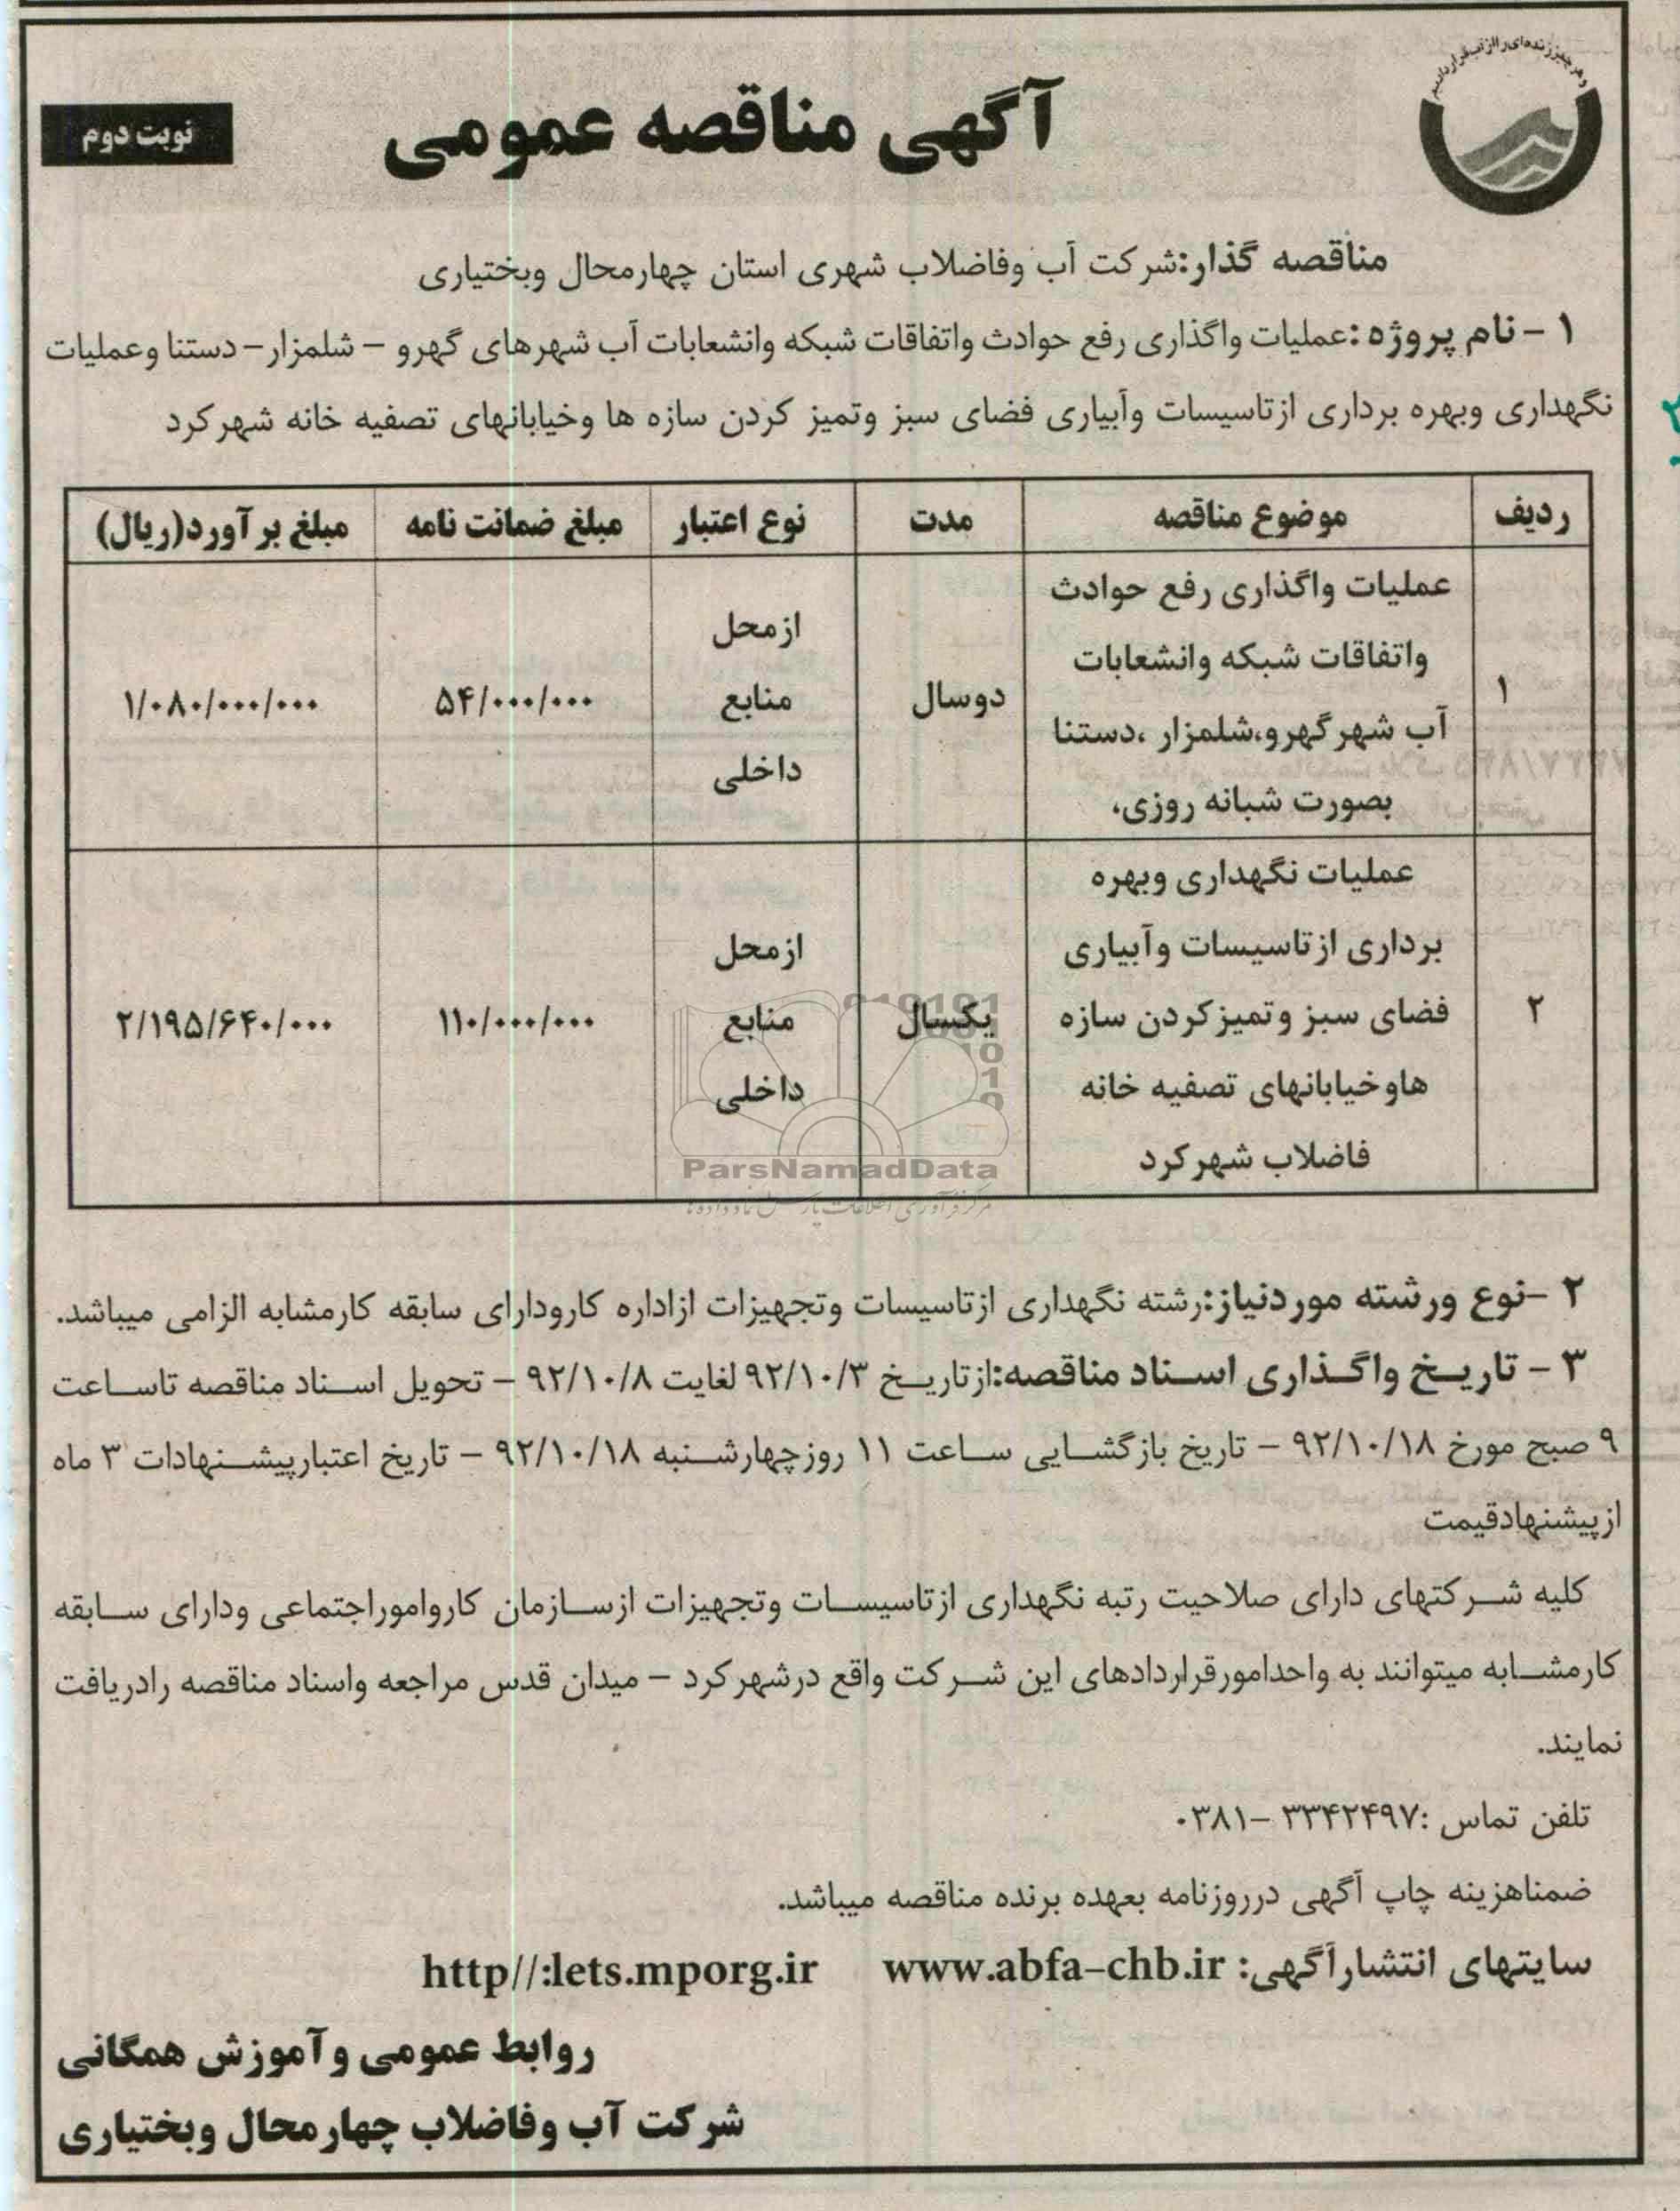 وهرچیز زنده‌ای را از آب قرار دادیم
آگهی مناقصه عمومی
نوبت دوم
مناقصه گذار:شرکت آب وفاضلاب شهری استان چهارمحال وبختیاری
۱ - نام پروژه :عملیات واگذاری رفع حوادث واتفاقات شبکه وانشعابات آب شهرهای گهرو – شلمزار– دستنا وعملیات
نگهداری وبهره برداری ازتاسیسات وآبیاری فضای سبز وتمیز کردن سازه ها وخیابانهای تصفیه خانه شهرکرد
ردیف موضوع مناقصه مدت نوع اعتبار مبلغ ضمانت نامه مبلغ برآورد(ریال)
۱
عملیات واگذاری رفع حوادث
واتفاقات شبکه وانشعابات
آب شهرگهرو،شلمزار ،دستنا
بصورت شبانه روزی،
دوسال
ازمحل
منابع
داخلی
۵۴/۰۰۰/۰۰۰
۱/۰۸۰/۰۰۰/۰۰۰
۲
عملیات نگهداری وبهره
برداری ازتاسیسات وآبیاری
فضای سبز وتمیزکردن سازه
هاوخیابانهای تصفیه خانه
فاضلاب شهرکرد
یکسال
ازمحل
منابع
داخلی
۱۱۰/۰۰۰/۰۰۰
۲/۱۹۵/۶۴۰/۰۰۰
ParsNamadData
مرکز فرآوری اطلاعات پارس نماد داده ها
۲ -نوع ورشته موردنیاز:رشته نگهداری ازتاسیسات وتجهیزات ازاداره کارودارای سابقه کارمشابه الزامی میباشد.
۳ - تاریخ واگذاری اسناد مناقصه:ازتاریخ ۹۲/۱۰/۳ لغایت ۹۲/۱۰/۸ – تحویل اسناد مناقصه تاساعت
۹ صبح مورخ ۹۲/۱۰/۱۸ – تاریخ بازگشایی ساعت ۱۱ روزچهارشنبه ۹۲/۱۰/۱۸ – تاریخ اعتبارپیشنهادات ۳ ماه
ازپیشنهادقیمت
کلیه شرکتهای دارای صلاحیت رتبه نگهداری ازتاسیسات وتجهیزات ازسازمان کارواموراجتماعی ودارای سابقه
کارمشابه میتوانند به واحدامورقراردادهای این شرکت واقع درشهرکرد – میدان قدس مراجعه واسناد مناقصه رادریافت
نمایند.
تلفن تماس :۳۳۴۲۴۹۷ –۰۳۸۱
ضمناهزینه چاپ آگهی درروزنامه بعهده برنده مناقصه میباشد.
سایتهای انتشارآگهی: www.abfa–chb.ir http//:lets.mporg.ir
روابط عمومی وآموزش همگانی
شرکت آب وفاضلاب چهارمحال وبختیاری